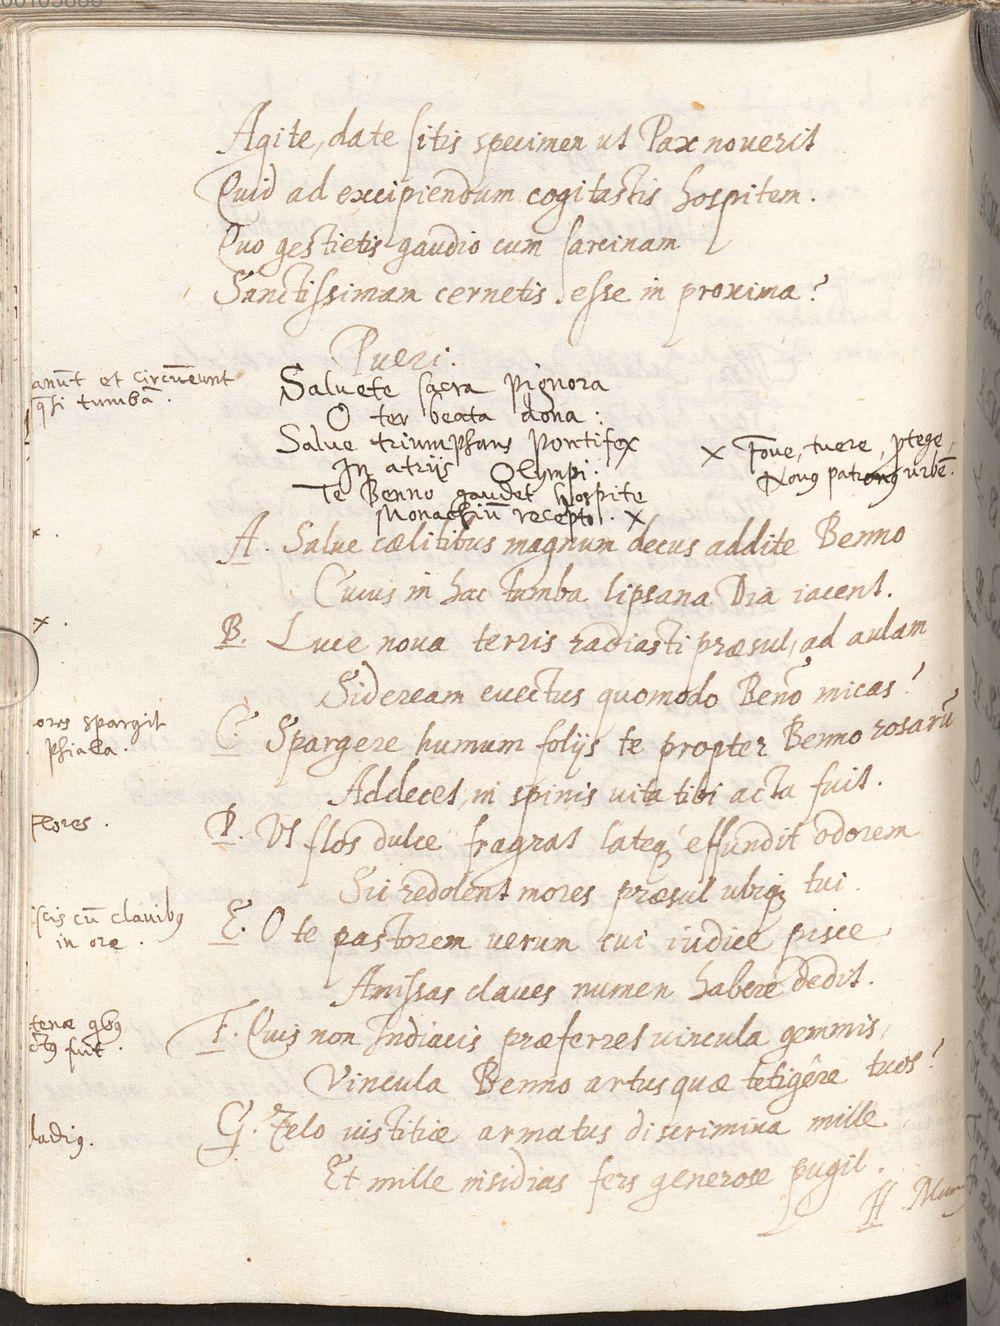 Agite, date sitis specimen ut Pax noverit
Quid ad excipiendum cogitastis hospitem.
Quo gestietis gaudio cum sarcinam
Sanctissimam cernetis esse in proxima?
Pueri.
anūt et circūeunt
q̄si tumbā.
Saluete sacra pignora
O ter beata dona:
Salue triumphans Pontifex
In atrijs Olympi.
Te Benno gaudet hospite
Monachiū recepto. x
x Foue, tuere, ꝓtege,
Nouꝰ patronꝰ urbē.
x.
A. Salue cælitibus magnum decus addite Benno
Cuius in hac tumba lipsana Dia iacent.
x.
B. Luce noua terris radiasti præsul, ad aulam
Sideream euectus quomodo Beño micas?
ores spargit
phiala.
C. Spargere humum folijs te propter Benno rosarū
Addecet, in spinis uita tibi acta fuit.
Flores.
D. Ut flos dulce fragrat lateq́ effundit odorem
Sic redolent mores præsul ubiq tui.
iscis cū clauibꝰ
in ore.
E. O te pastorem uerum cui iudice pisce
Amissas claues numen habere dedit.
tenæ qbꝰ
ctꝰ fuit.
F. Quis non Indiacis præferret uincula gemmis,
Vincula Benno artus quæ tetigêre tuos?
ladiꝰ.
G. Zelo iustitiæ armatus discrimina mille
Et mille insidias fers generose pugil.
H.